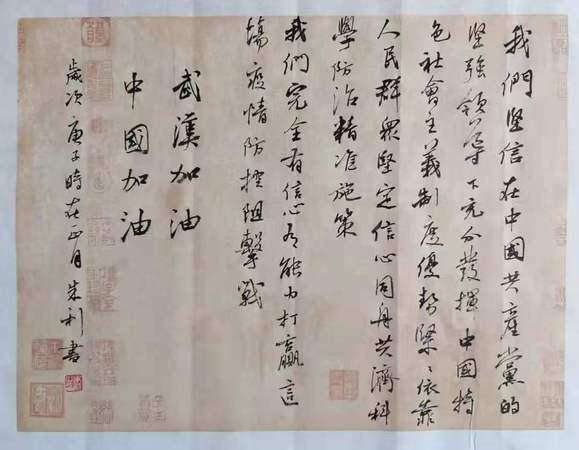 我們堅信在中國共產黨的
坚強領导下充分發揮中國特
色社會主義制度優勢緊〻依靠
人民群衆堅定信心同舟共濟科
學防治精准施策
我們完全有信心有能力打贏這
場疫情防控阻擊戰
武漢加油
中國加油
歲次庚子時在正月朱利書